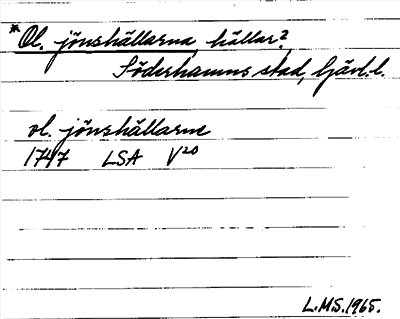 *Ol. jönshällarna, hällar?
Söderhamns stad, Gävl.l.
ol. jönshällarne
1747 LSA V20
L.M.S. 1965.